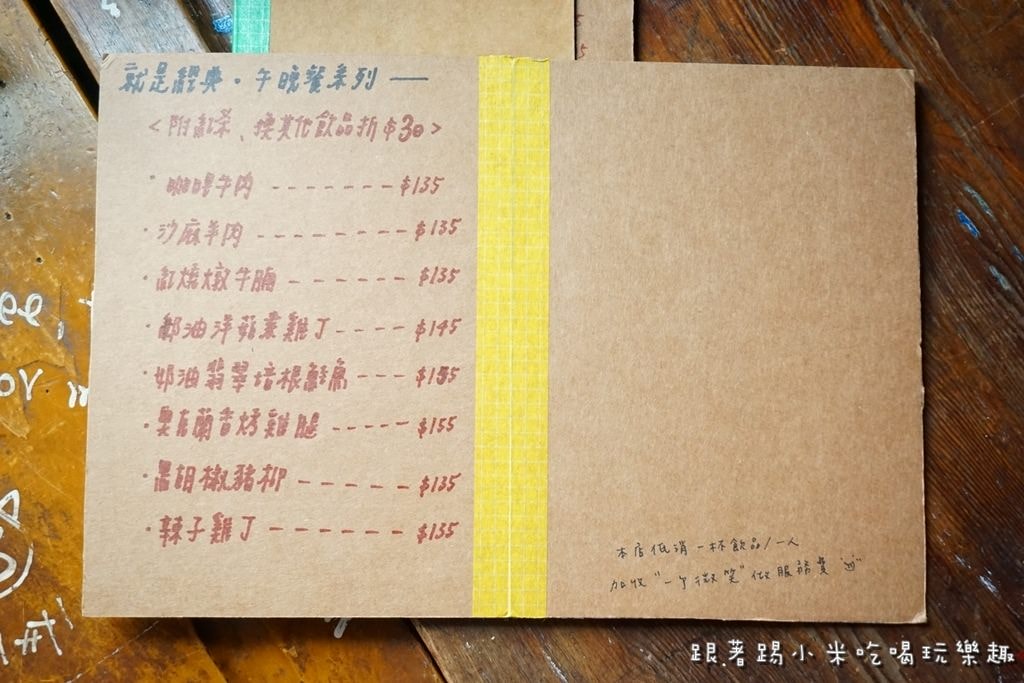 就是經典・午晚餐系列 —
<附紅茶、換其他飲品折$30>
・咖哩牛肉 ------- $135
・沙麻羊肉 ------- $135
・紅燒燉牛腩 ------ $135
・奶油洋菇燻雞丁 ---- $145
・奶油翡翠培根鮭魚 --- $155
・奧尔蘭香烤雞腿 ----- $155
・黑胡椒豬柳 ------ $135
・辣子雞丁 ------- $135
本店低消一杯飲品/一人
加收"一个微笑"做服務費
跟著踢小米吃喝玩樂趣
ee,
or m